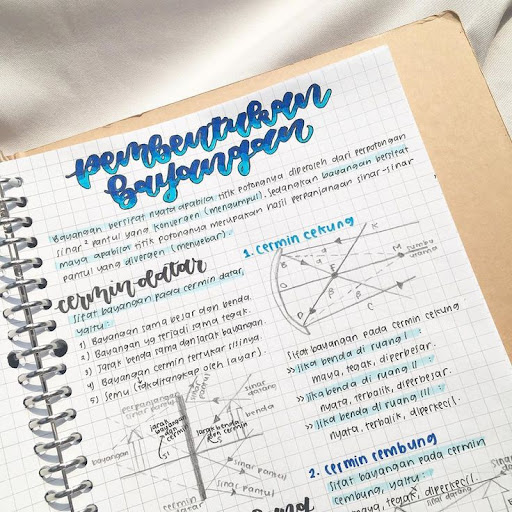 pembentukan
bayangan
Bayangan bersifat nyata apabila titik potongnya diperoleh dari perpotongan
sinar² pantul yang konvergen (mengumpul). Sedangkan bayangan bersifat
maya apabila titik potongnya merupakan hasil perpanjangan sinar-sinar
pantul yang divergen (menyebar).
cermin datar
Sifat bayangan pada cermin datar,
yaitu:
1) Bayangan sama besar dgn benda.
2) Bayangan yg terjadi sama tegak.
3) Jarak benda sama dgn jarak bayangan
4) Bayangan cermin tertukar sisinya.
5) Semu (tdk dirangkap oleh layar).
perpanjangan
sinar pantul
sinar
datang
jarak
bayangan
dgn
cermin
S'
Jarak benda
dgn cermin
S
benda
bayangan
sinar pantul
sinar pantul
cermin
1. cermin cekung
K
M
sumbu
utama
B
F
D
C
Sifat bayangan pada cermin cekung
>> Jika benda di ruang I :
maya, tegak, diperbesar.
>> Jika benda di ruang II :
nyata, terbalik, diperbesar.
>> Jika benda di ruang III :
nyata, terbalik, diperkecil.
2. cermin cembung
Sifat bayangan pada cermin
cembung, yaitu:
maya, tegak, diperkecil.
sinar datang